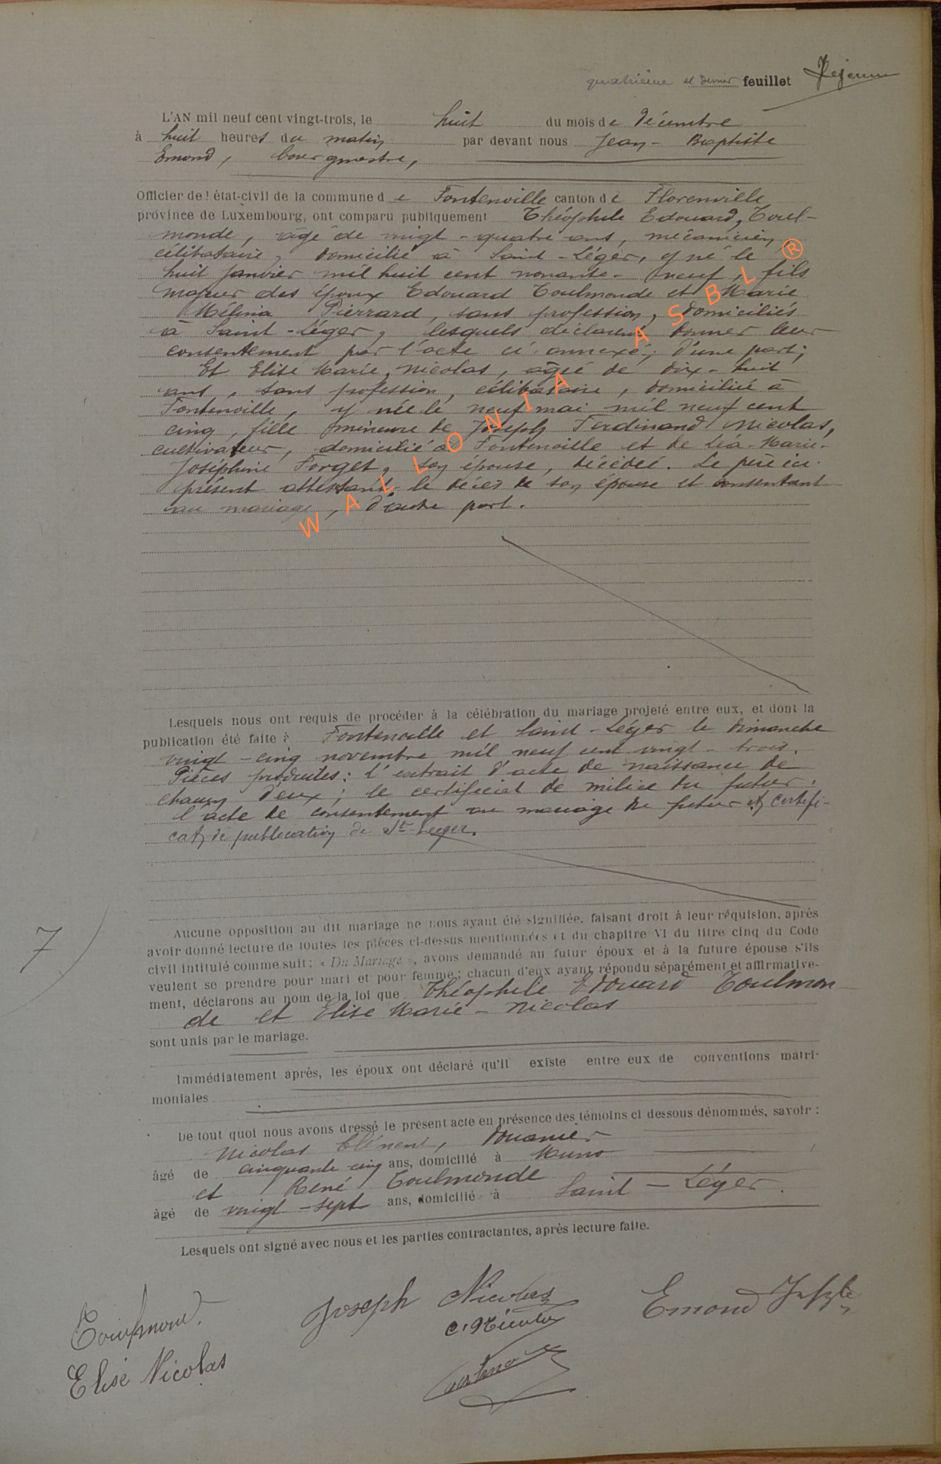 quatrième et dernier feuillet Lejeune
L'AN mil neuf cent vingt-trois, le huit du mois de Décembre
à huit heures du matin par devant nous Jean-Baptiste
Emond, bourgmestre,
Officier de l'état-civil de la commune de Fontenoille canton de Florenville
province de Luxembourg, ont comparu publiquement Théophile Edouard, Toul-
monde, âgé de vingt-quatre ans, mécanicien
célibataire, domicilié à Saint-Léger, y né le
huit janvier mil huit cent nonante-neuf, fils
majeur des époux Edouard Toulmonde et Marie
Mélina Pierrard, sans profession, domiciliés
à Saint-Léger, lesquels déclarent donner leur
consentement par l'acte ci-annexé, d'une part;
Et Elise Marie, Nicolas, âgée de dix-huit
ans, sans profession, célibataire, domiciliée à
Fontenoille, y née le neuf mai mil neuf cent
cinq, fille mineure de Joseph Ferdinand Nicolas,
cultivateur, domicilié à Fontenoille et de Léa-Marie-
Joséphine Forget, son épouse, décédée. Le père ici
présent attestant le décès de son épouse et consentant
au mariage, d'autre part.
WALLONIA ASBL ®
Lesquels nous ont requis de procéder à la célébration du mariage projeté entre eux, et dont la
publication été faite à Fontenoille et Saint-Léger le dimanche
vingt-cinq novembre mil neuf cent vingt-trois.
Pièces produites: l'extrait d'acte de naissance de
chacun d'eux; le certificat de milice du futur;
l'acte de consentement au mariage du futur et certifi-
cat de publication de St-Léger.
7)
Aucune opposition au dit mariage ne nous ayant été signifiée, faisant droit à leur réquision, après
avoir donné lecture de toutes les pièces ci-dessus mentionnées et du chapitre VI du titre cinq du Code
civil intitulé comme suit: « Du Mariage », avons demandé au futur époux et à la future épouse s'ils
veulent se prendre pour mari et pour femme; chacun d'eux ayant répondu séparément et affirmative-
ment, déclarons au nom de la loi que Théophile Edouard Toulmon-
de et Elise Marie-Nicolas
sont unis par le mariage.
Immédiatement après, les époux ont déclaré qu'il existe entre eux de conventions matri-
moniales
De tout quoi nous avons dressé le présent acte en présence des témoins ci dessous dénommés, savoir:
Nicolas Clément, douanier
âgé de cinquante cinq ans, domicilié à Muno
et René Toulmonde
âgé de vingt-sept ans, domicilié à Saint-Léger.
Lesquels ont signé avec nous et les parties contractantes, après lecture faite.
Joseph Nicolas Emond
Toulmond. C. Nicolas
Elise Nicolas